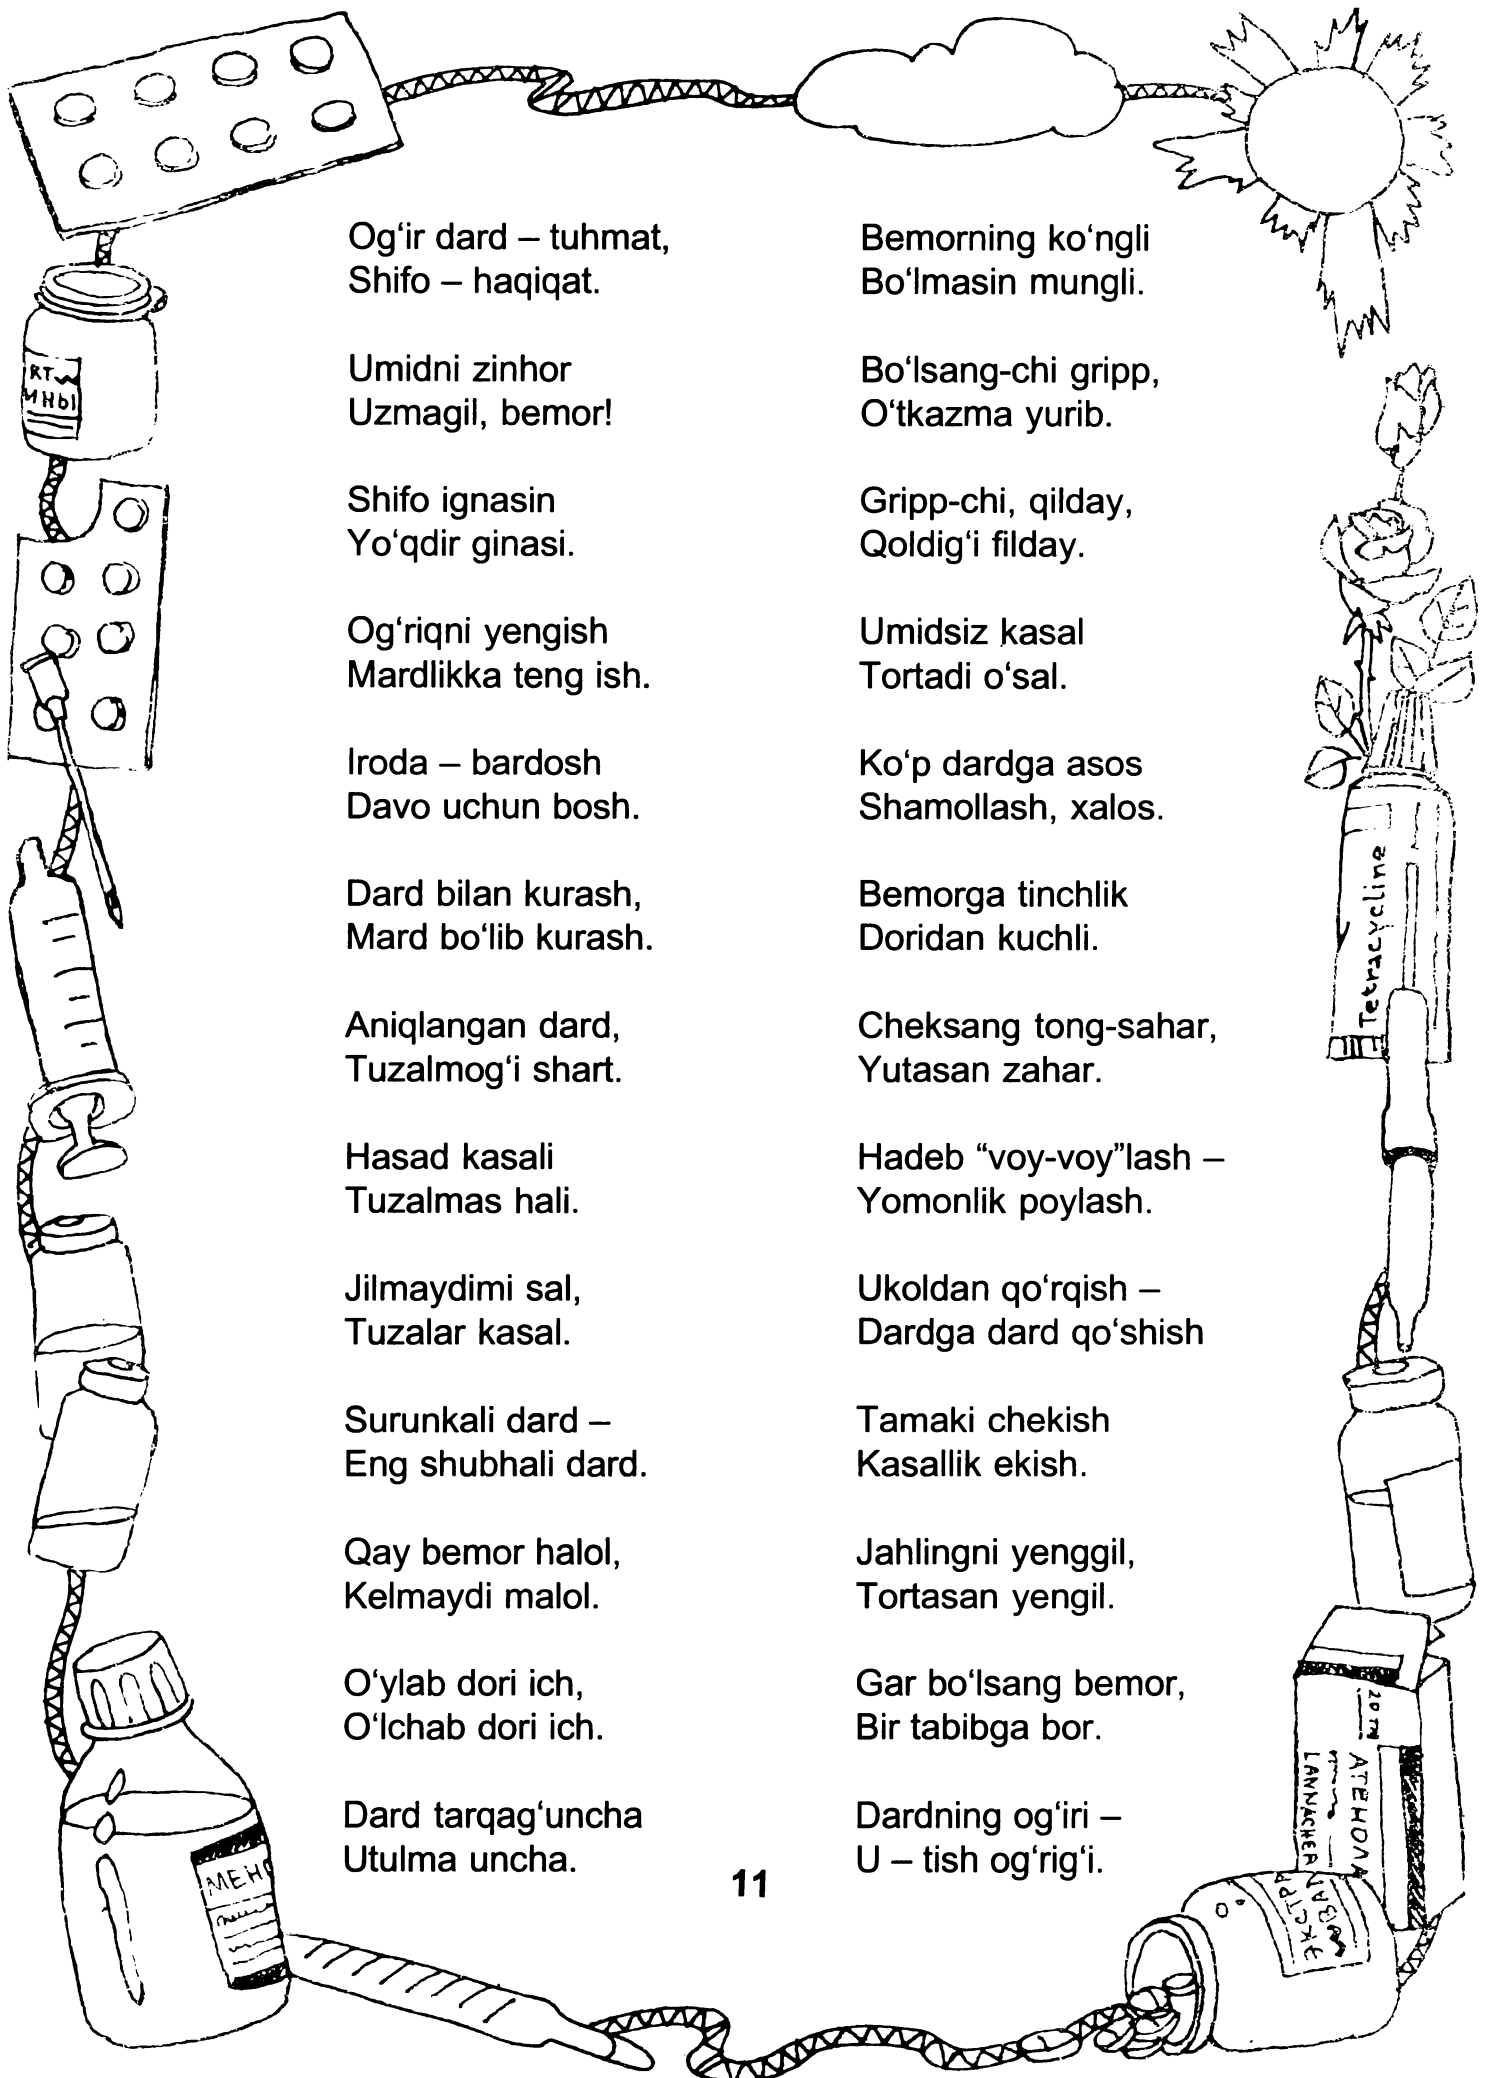 Og‘ir dard – tuhmat,
Shifo – haqiqat.
Umidni zinhor
Uzmagil, bemor!
Shifo ignasin
Yo‘qdir ginasi.
Og‘riqni yengish
Mardlikka teng ish.
Iroda – bardosh
Davo uchun bosh.
Dard bilan kurash,
Mard bo‘lib kurash.
Aniqlangan dard,
Tuzalmog‘i shart.
Hasad kasali
Tuzalmas hali.
Jilmaydimi sal,
Tuzalar kasal.
Surunkali dard –
Eng shubhali dard.
Qay bemor halol,
Kelmaydi malol.
O‘ylab dori ich,
O‘lchab dori ich.
Dard tarqag‘uncha
Utulma uncha.
Bemorning ko‘ngli
Bo‘lmasin mungli.
Bo‘lsang-chi gripp,
O‘tkazma yurib.
Gripp-chi, qilday,
Qoldig‘i filday.
Umidsiz kasal
Tortadi o‘sal.
Ko‘p dardga asos
Shamollash, xalos.
Bemorga tinchlik
Doridan kuchli.
Cheksang tong-sahar,
Yutasan zahar.
Hadeb “voy-voy”lash –
Yomonlik poylash.
Ukoldan qo‘rqish –
Dardga dard qo‘shish
Tamaki chekish
Kasallik ekish.
Jahlingni yenggil,
Tortasan yengil.
Gar bo‘lsang bemor,
Bir tabibga bor.
Dardning og‘iri –
U – tish og‘rig‘i.
11
RT
ИНЫ
МЕНО
Tetracycline
АТЕНОЛА
LANNACHER
ЭКСТРА
ВАЛ